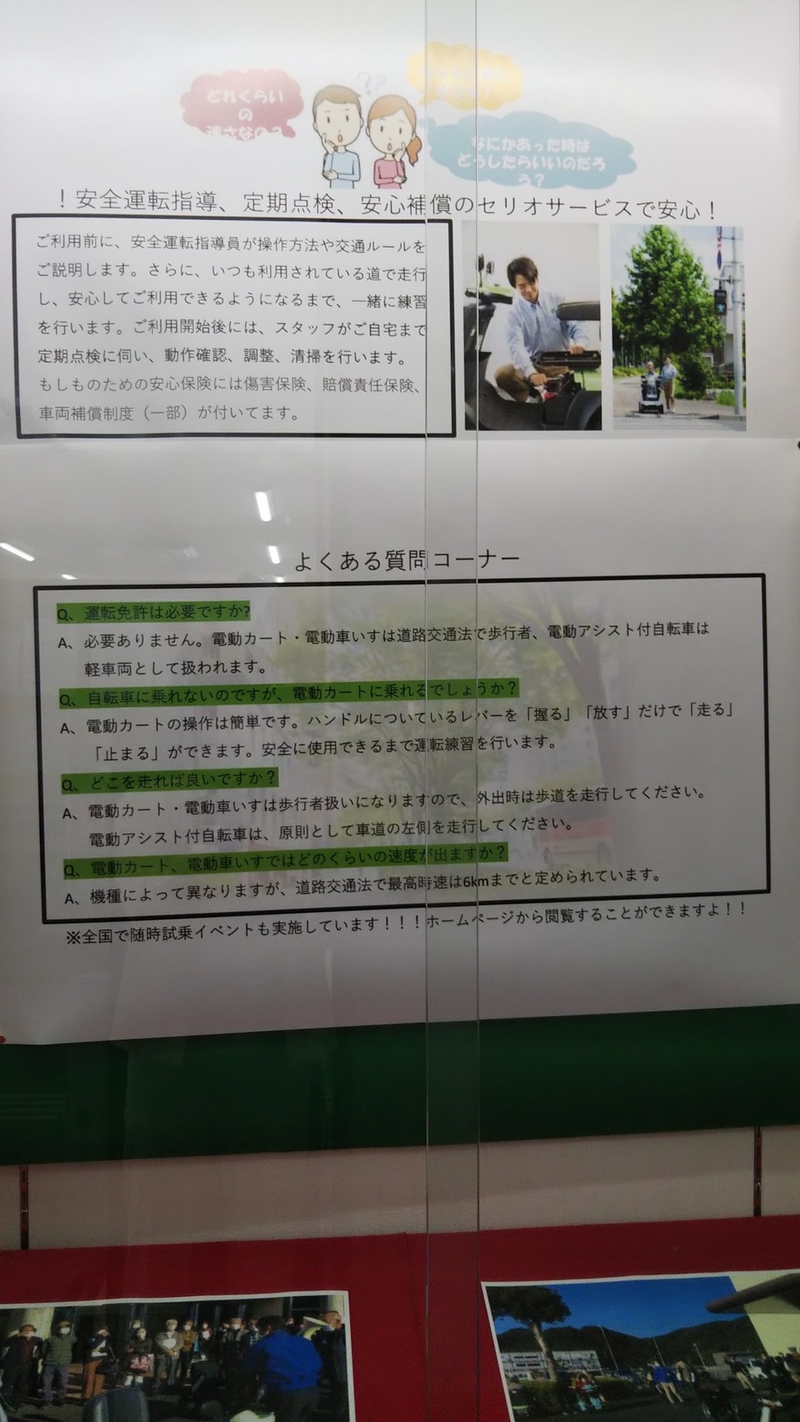 どれくらい
の
速さなの？
なにかあった時は
どうしたらいいのだろ
う？
！安全運転指導、定期点検、安心補償のセリオサービスで安心！
ご利用前に、安全運転指導員が操作方法や交通ルールを
ご説明します。さらに、いつも利用されている道で走行
し、安心してご利用できるようになるまで、一緒に練習
を行います。ご利用開始後には、スタッフがご自宅まで
定期点検に伺い、動作確認、調整、清掃を行います。
もしものための安心保険には傷害保険、賠償責任保険、
車両補償制度（一部）が付いてます。
よくある質問コーナー
Q、運転免許は必要ですか?
A、必要ありません。電動カート・電動車いすは道路交通法で歩行者、電動アシスト付自転車は
軽車両として扱われます。
Q、自転車に乗れないのですが、電動カートに乗れるでしょうか？
A、電動カートの操作は簡単です。ハンドルについているレバーを「握る」「放す」だけで「走る」
「止まる」ができます。安全に使用できるまで運転練習を行います。
Q、どこを走れば良いですか？
A、電動カート・電動車いすは歩行者扱いになりますので、外出時は歩道を走行してください。
電動アシスト付自転車は、原則として車道の左側を走行してください。
Q、電動カート、電動車いすではどのくらいの速度が出ますか？
A、機種によって異なりますが、道路交通法で最高時速は6kmまでと定められています。
※全国で随時試乗イベントも実施しています！！！ホームページから閲覧することができますよ！！